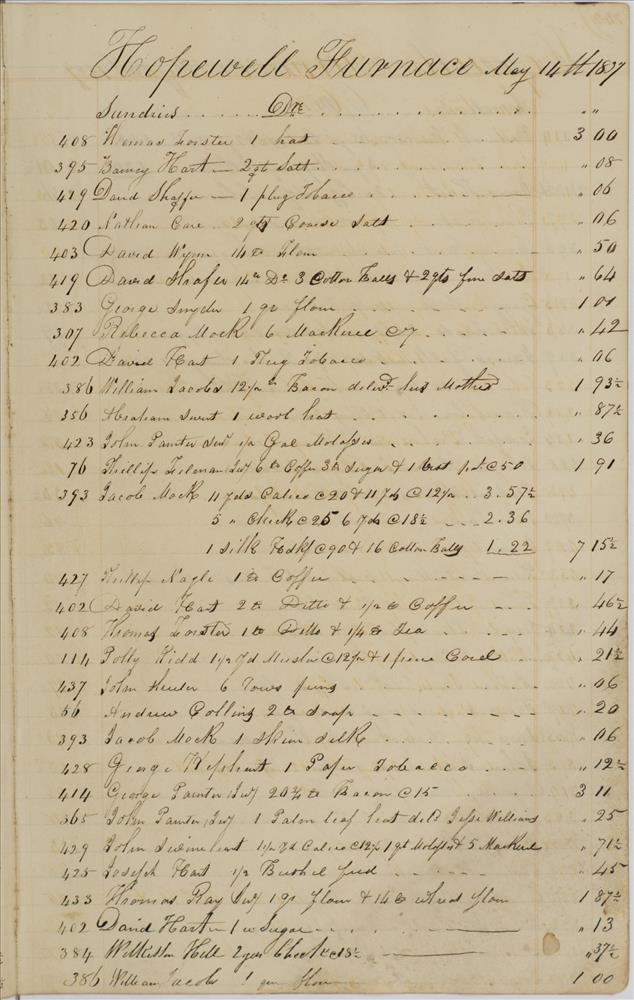 Hopewell Furnace May 14th 1837
Sundries Drs " "
408 Thomas Forster 1 hat 3 00
395 Barney Hart - 2 qt Salt " 08
479 David Shaffer - 1 plug Tobacco " 06
420 Nathan Care 2 qts Coarse Salt " 06
403 David Wynn 14 lb Flour " 50
419 David Shafer 14 lb Do 3 Cotton Balls & 2 qts fine Salt " 64
383 George Snyder 1 qr flour 1 01
307 Rebecca Mock 6 Mackerel C 7 " 42
402 David Hart 1 Plug Tobacco " 06
386 William Jacobs 12 1/2 lb Bacon delivd his Mother 1 93 1/2
356 Abraham 1 wool hat " 87 1/2
423 John Painter 1/2 Gal Molasses " 36
76 Phillip 6 lb Coffee 3 lb Sugar & 1 C 50 1 91
393 Jacob Mock 11 yds Calico C 20 & 11 yd C 12 1/2 3.57 1/2
5 " Check C 25 6 yds C 18 1/2 2.36
1 Silk Hdkf C 90 & 16 Cotton Balls 1.22 7 15 1/2
427 Phillip Nagle 1 lb Coffee " 17
402 David Hart 2 lb Ditto & 1/2 lb Coffee " 46 1/2
408 Thomas Forster 1 lb Ditto & 1/4 lb Tea " 44
114 Polly Kidd 1 1/2 yd Muslin C 12 1/2 & 1 piece Cord " 21 1/2
437 John 6 rows pins " 06
56 Andrew Colling 2 lb Soap " 20
393 Jacob Mock 1 Skein Silk " 06
428 George 1 Paper Tobacco " 12 1/2
414 George Painter 20 3/4 lb Bacon C 15 3 11
365 John Painter 1 Palm leaf hat deld Jesse Williams " 25
429 John Swinehart 1 1/2 yd Calico C 12 1/2 1 qt Molasses & 5 Mackerel " 71 1/2
425 Joseph Hart 1/2 Bushel feed " 45
433 Thomas Ray 1 qr flour & 14 lb wheat flour 1 87 1/2
402 David Hart - 1 lb Sugar " 13
384 Hill 2 yds Check C 18 1/2 " 37 1/2
386 William Jacobs 1 qr flour 1 00